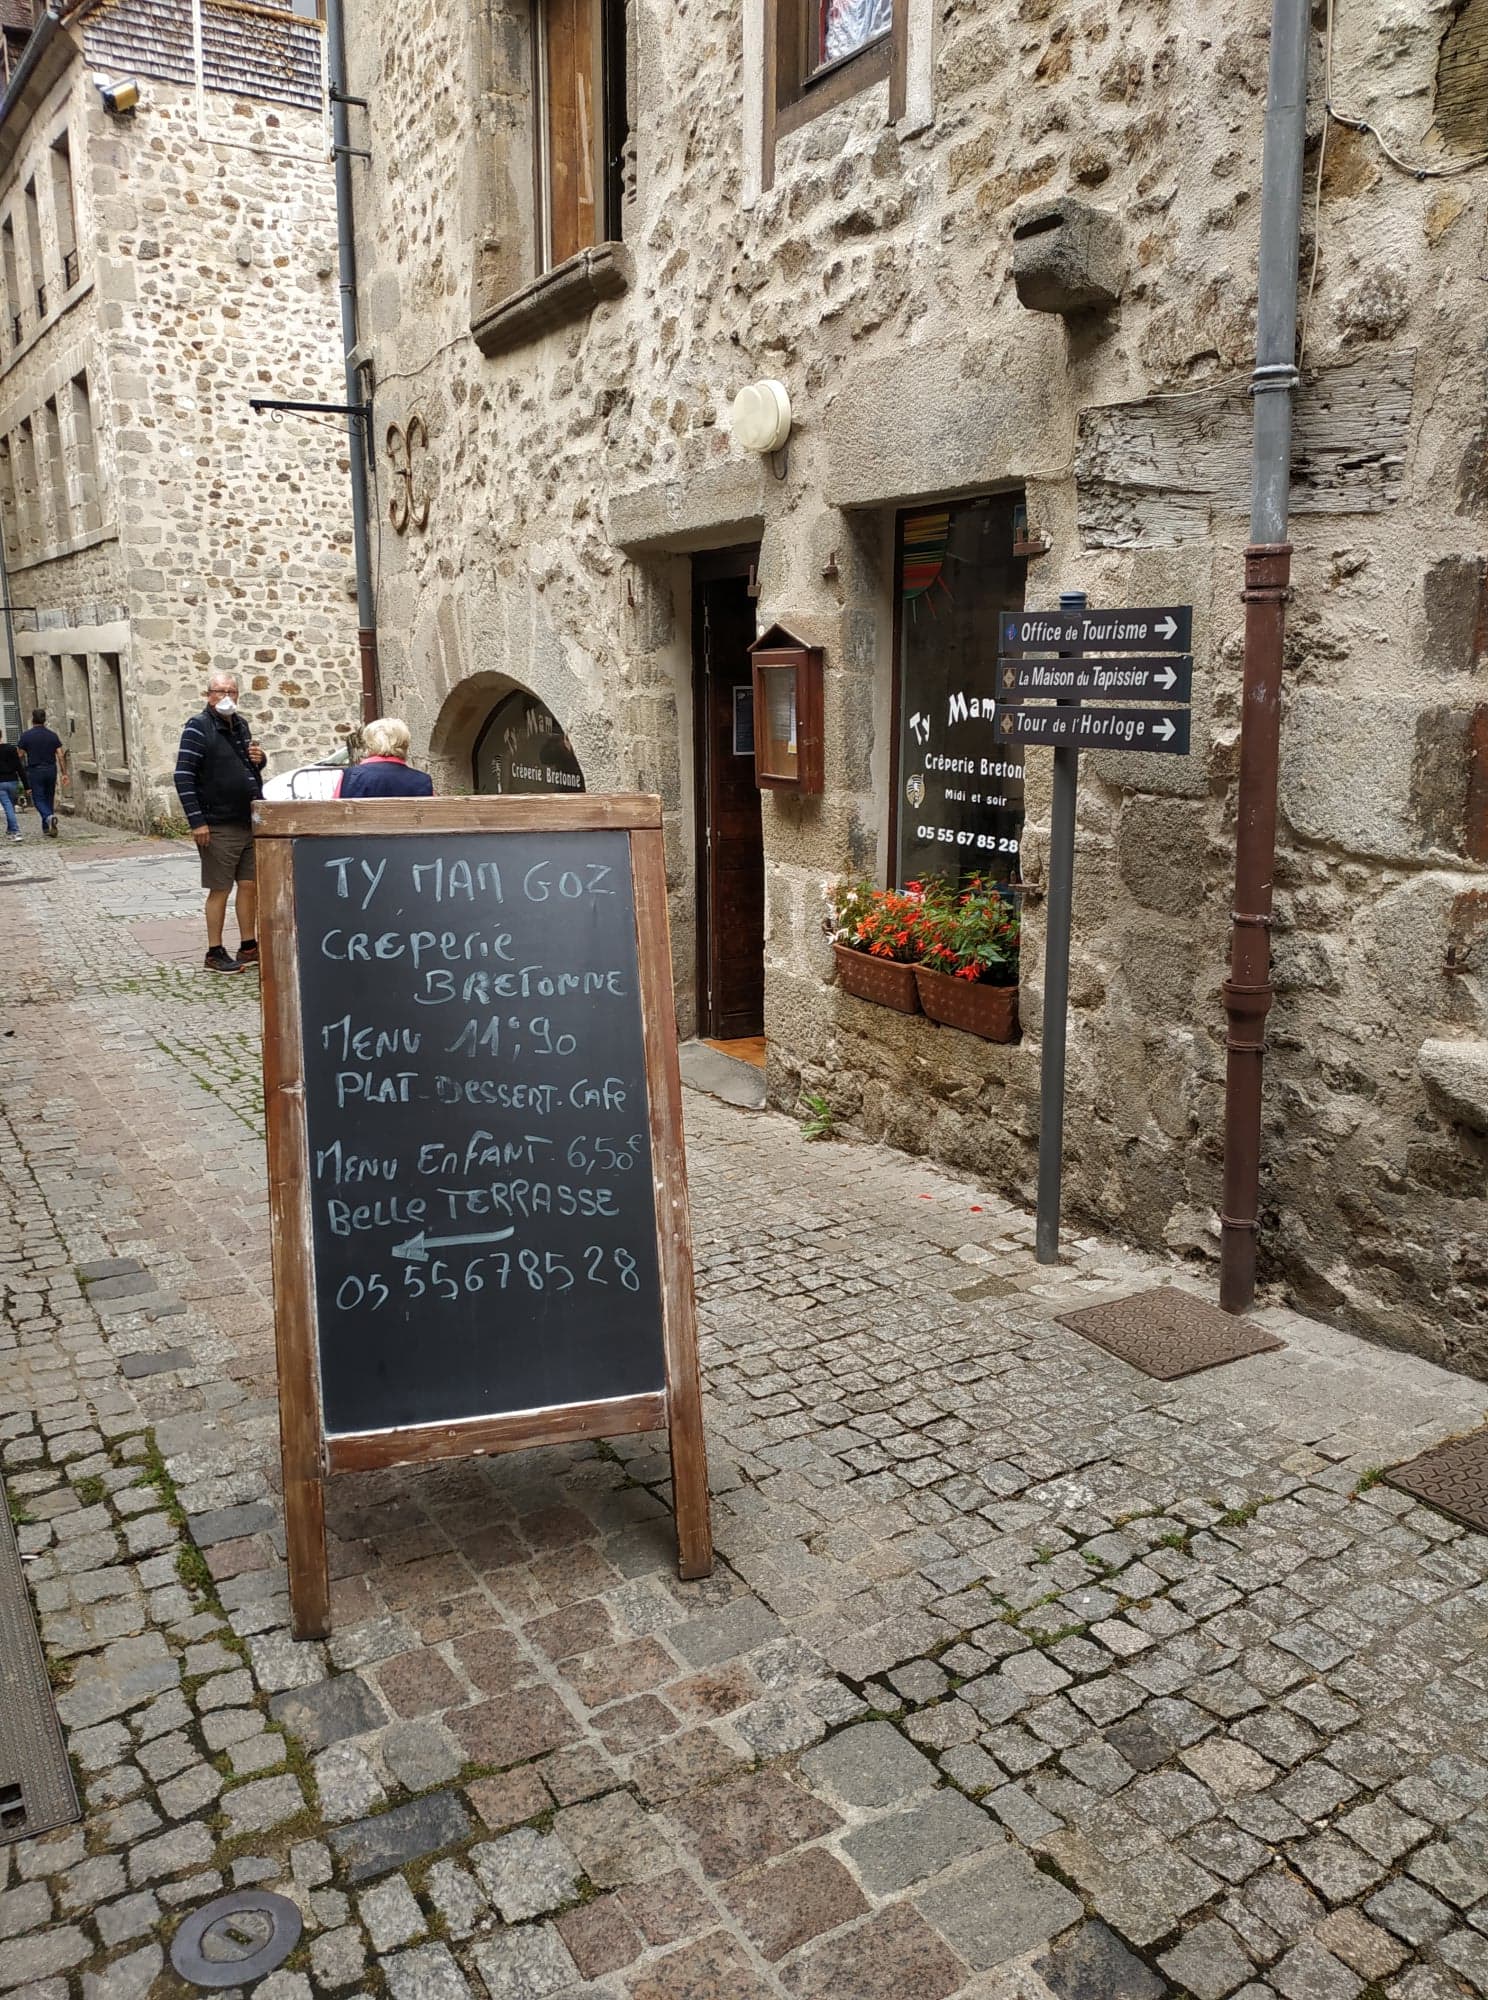 TY MAM GOZ
CRÊPERIE
BRETONNE
MENU 11€,90
PLAT-DESSERT-CAFE
MENU ENFANT-6,50€
BELLE TERRASSE
05 55678528
Office de Tourisme
La Maison du Tapissier
Tour de l'Horloge
Ty Mam
Crêperie Breton
Midi et soir
05 55 67 85 28
Ty Mam
Crêperie Bretonne